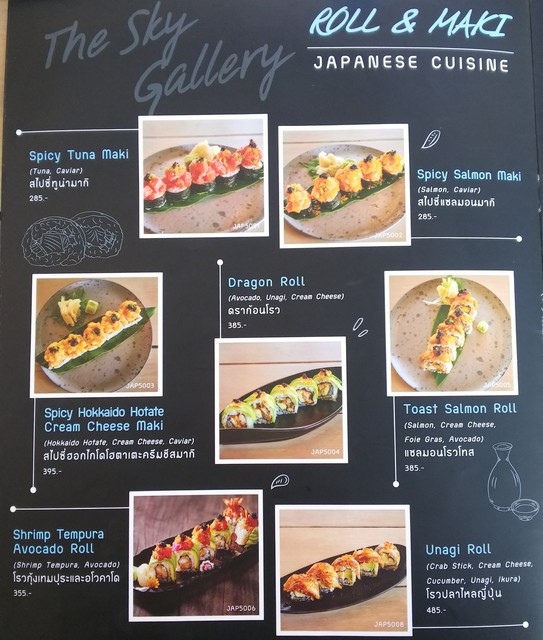 The Sky
Gallery
ROLL & MAKI
JAPANESE CUISINE
Spicy Tuna Maki
(Tuna, Caviar)
สไปซี่ทูน่ามากิ
285.-
JAP5001
Spicy Salmon Maki
(Salmon, Caviar)
สไปซี่แซลมอนมากิ
285.-
JAP5002
JAP5003
Spicy Hokkaido Hotate
Cream Cheese Maki
(Hokkaido Hotate, Cream Cheese, Caviar)
สไปซี่ฮอกไกโดโฮตาเตะครีมชีสมากิ
395.-
Dragon Roll
(Avocado, Unagi, Cream Cheese)
ดราก้อนโรว
385.-
JAP5004
JAP5005
Toast Salmon Roll
(Salmon, Cream Cheese,
Foie Gras, Avocado)
แซลมอนโรวโทส
385.-
Shrimp Tempura
Avocado Roll
(Shrimp Tempura, Avocado)
โรวกุ้งเทมปุระและอโวคาโด
355.-
JAP5006
JAP5008
Unagi Roll
(Crab Stick, Cream Cheese,
Cucumber, Unagi, Ikura)
โรวปลาไหลญี่ปุ่น
485.-